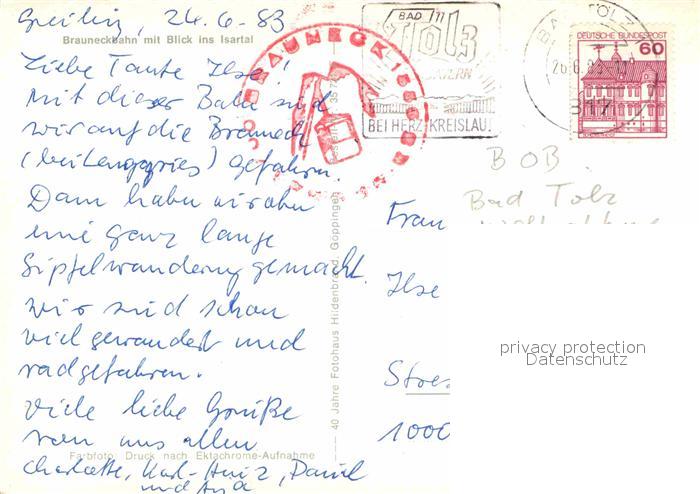 Greiling, 24.6.83
Brauneckbahn mit Blick ins Isartal
Liebe Tante Ilse!
Mit dieser Bahn sind
wir auf die Brauneck
(bei Lenggries) gefahren.
Dann haben wir oben
eine ganz lange
Gipfelwanderung gemacht.
Wir sind schon
viel gewandert und
radgefahren.
Viele liebe Grüße
von uns allen
Farbfoto: Druck nach Ektachrome-Aufnahme
Charlotte, Karl-Heinz, Daniel
und
40 Jahre Fotohaus Hildenbrand, Göppingen
BRAUNECK 1555
BAD
Tölz
BAYERN
BEI HERZ-KREISLAUF
BAD TÖLZ
DEUTSCHE BUNDESPOST
60
BOB
Bad Tölz
Frau
Ilse
1000
privacy protection
Datenschutz